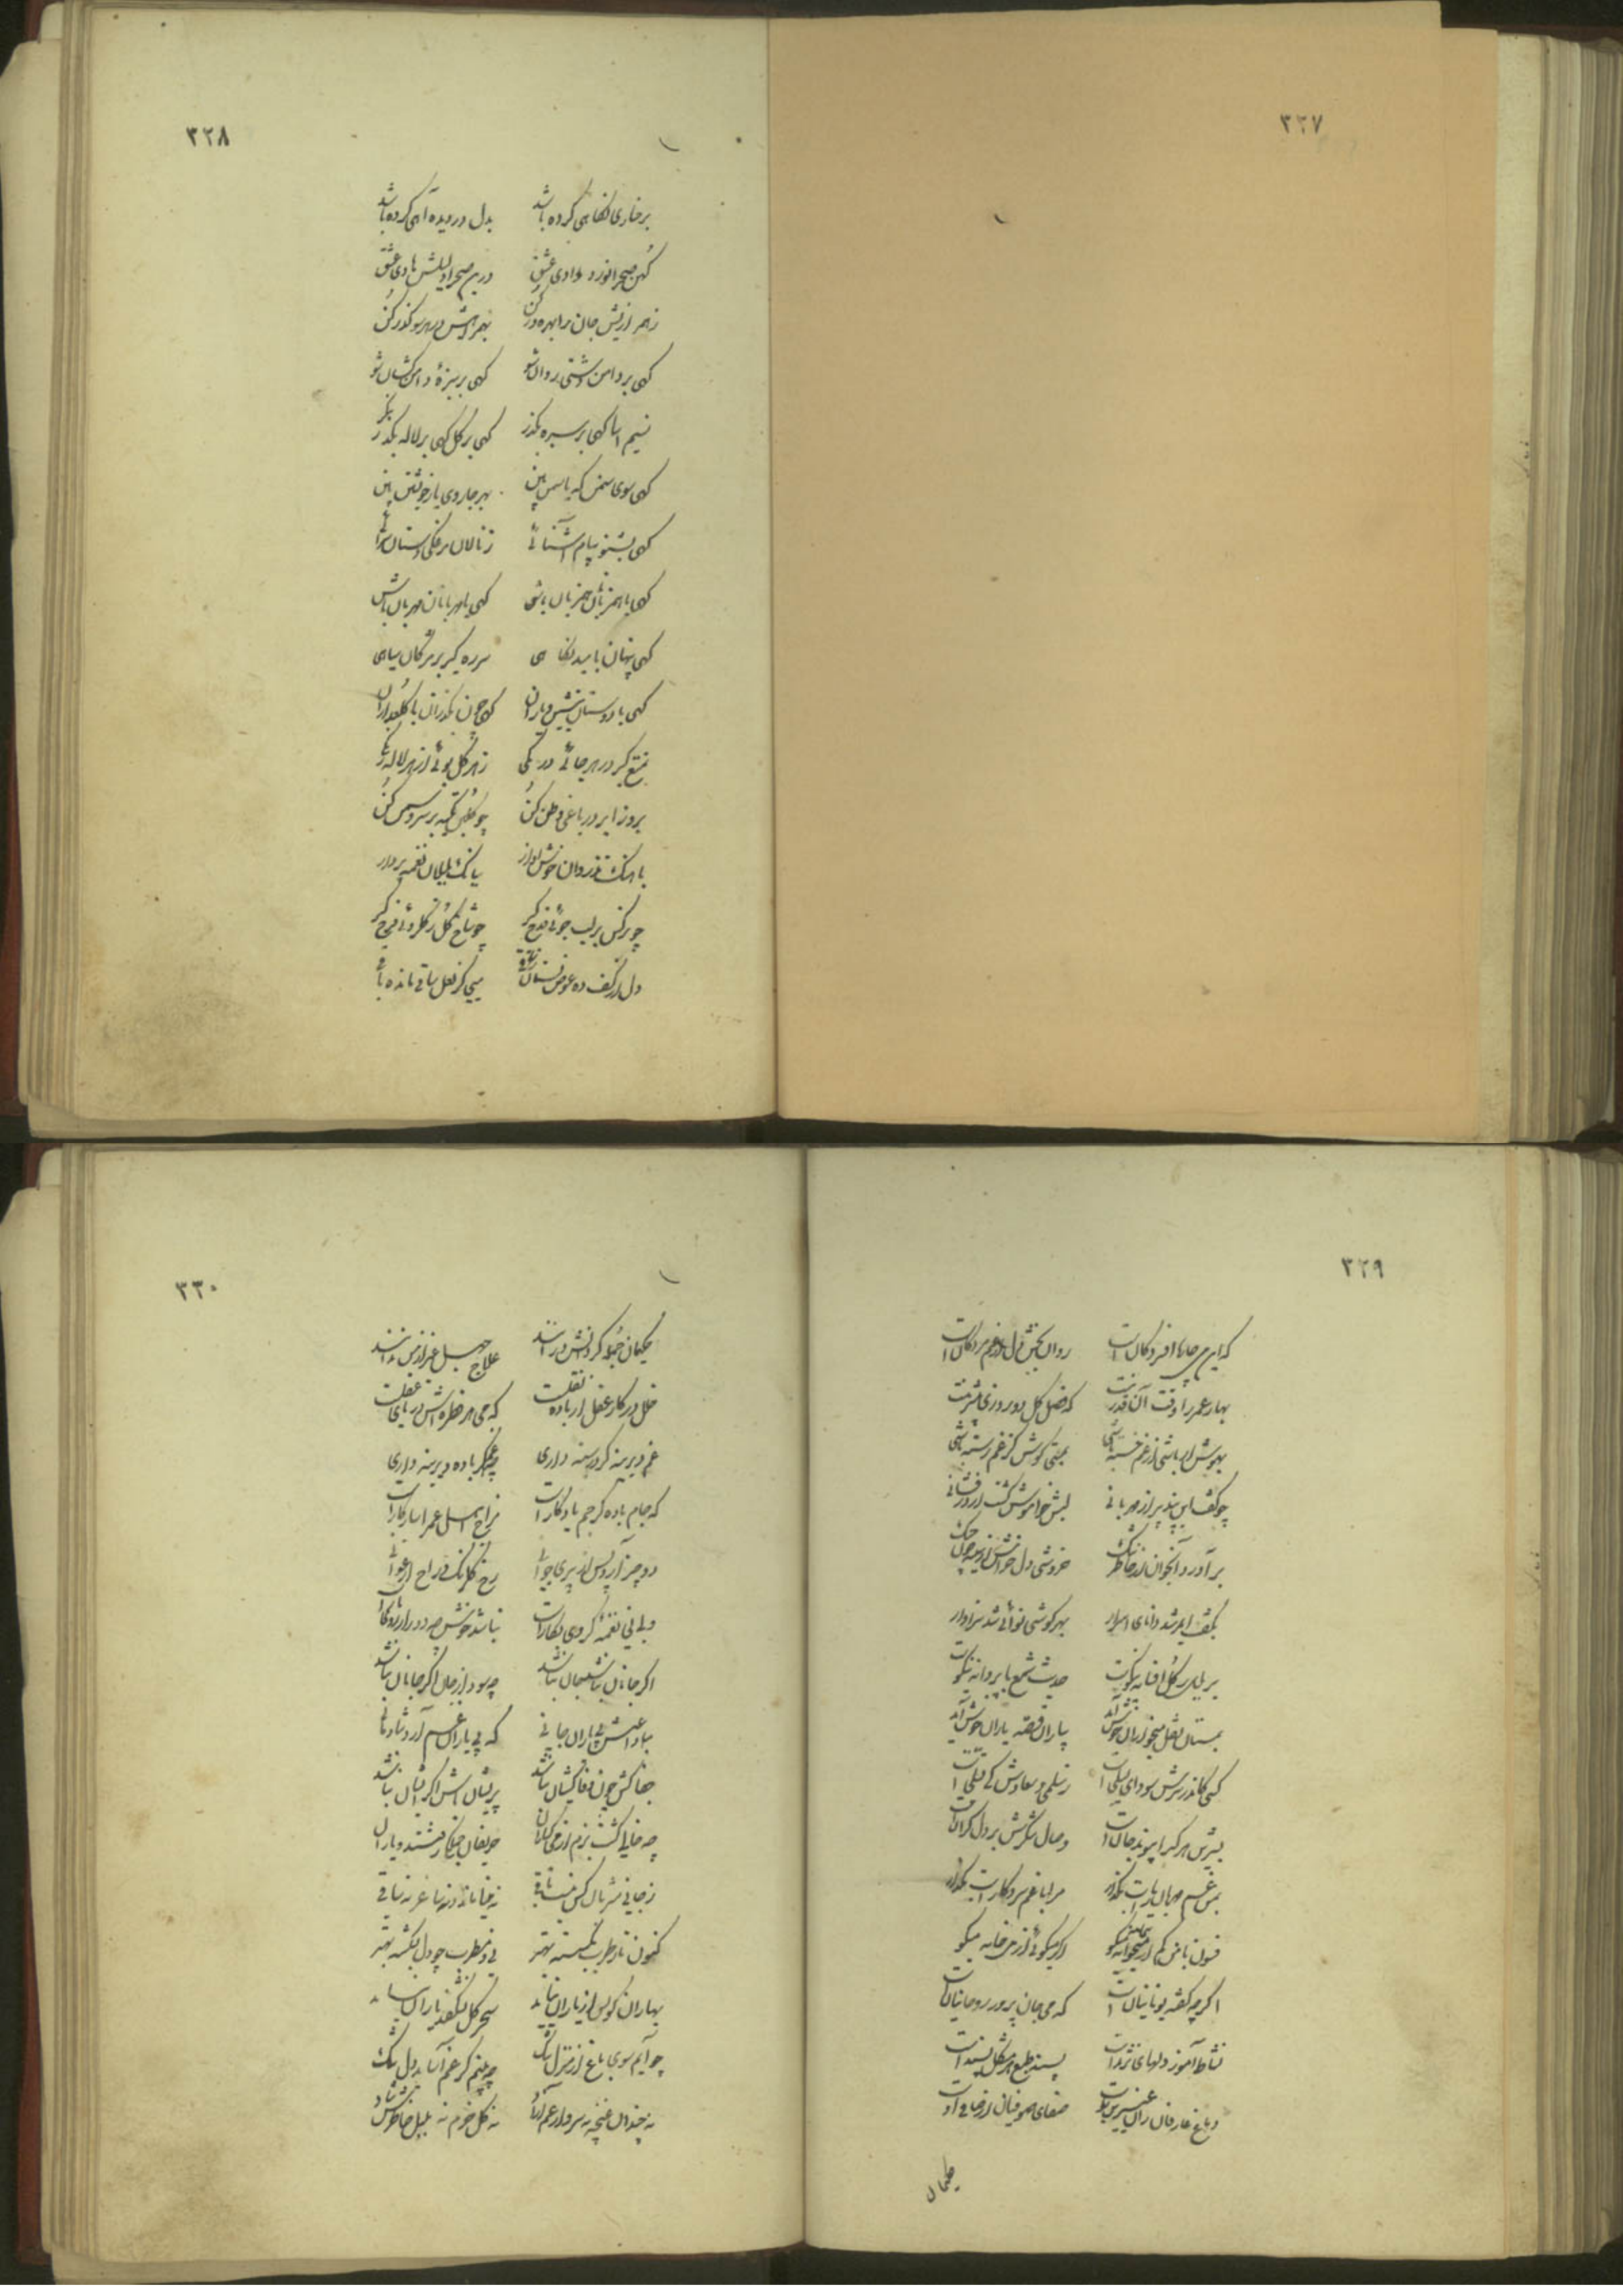 ۳۲۷
۳۲۸
بر خاری نگاهی کرده باشد بدل دردیده آهی کرده باشد
کهن صحرانورد وادی عشق درین صحرا دلیلش هادی عشق
ز هر ارزیش جان را بهره ور کن بهمراهیش در هر سو گذر کن
گهی بر دامن دشتی روان شو گهی بر سبزهٔ دامن کشان شو
نسیم آسا گهی بر سبزه بگذر گهی بر گل گهی بر لاله بنگر
گهی سوی سمن گه یاسمن بین بهر جا روی یار خویشتن بین
گهی بشنو پیام آشنائی ز نالان مرغکی دستان سرائی
گهی با همزبانان همزبان باش گهی با مهربانان مهربان باش
گهی پنهان بامید نگاهی سر ره گیر بر مژگان سیاهی
گهی با دوستان بنشین و یاران گهی چون بگذران با گلعذاران
تمتع گیر در هر جائی و رنگی ز هر گل بوئی از هر لاله رنگی
بروز ابر در باغی وطن کن چو گلبن تکیه بر سرو سمن کن
باهنگ تذروان خوش آواز ببانگ بلبلان نغمه پرداز
چو نرگس بر لب جوئی قدح گیر چو شاخ گل ز گلروئی قدح گیر
دل از کف ده عوض بستان ز ساقی میی کز لعل ساقی مانده باقی
۳۲۹
که این می جانها افزودگان است روان بخش دل افسردگان است
بهار عمر را وقت آنقدر نیست که فصل گل دو روزی بیشتر نیست
بهوش ار باشی از غم خسته باشی بمستی کوش کز غم رسته باشی
چو گفت این پند پیر از مهربانی لبش خاموش گشت از درفشانی
بر آورد آنجوان از خاطر تنگ خروشی دلخراش از سینه چون چنگ
بگفت ای مرشد دانای اسرار بهر گوشی نوائی شد سزاوار
بر بلبل ز گل افسانه نیکوست حدیث شمع با پروانه نیکوست
بمستان نقل میخواران خوش آید بیاران قصه یاران خوش آید
کسی کاندر سرش سودای لیلی است ز سلمی و سعادش کی تسلی است
بشیرین هر که را پیوند جان است وصال شکرش بر دل گران است
بمن غم مهربان یار است بگذار مرا با غم سر و کار است بگذار
فسون با من کم از میخوانه میگو اگر میگوئی از میخانه میگو
اگر چه گفته یونانیان است که می جان پرور روحانیان است
نشاط آموز دلهای نژند است پسند طبع هر مشکل پسند است
دماغ عارفان را عنبرین بوست صفای صوفیان از صافی اوست
حکیمان
۳۳۰
حکیمان جمله کز دانش ورانند علاج جهل غیر از می ندانند
خلل در کار عقل از باده نقلست که می هر قطره اش دریای عقلست
غم دیرینه گر در سینه داری چه غم گر باده دیرینه داری
که جام باده کز جم یادگار است مزاج اهل عمر را سازگار است
دو چیز آرد پس از پیری جوانی رخ گلرنگ و راح ارغوانی
ولی نی نغمه گر وی نگار است نباشد خوش چه دور از روی یار است
اگر جانان نباشد جان نباشد چه سود از جان اگر جانان نباشد
مبادا عیش بی یاران جانی که بی یاران غم آرد شادمانی
جفاکش چون وفاکیشان نباشد پریشان باش اگر ایشان نباشد
چه خالی گشت بزم از میگساران حریفان جملگی رفتند و یاران
ز جانی نشان کس نیست باقی نه مینا مانده نه ساغر نه ساقی
کنون تار طرب بگسسته بهتر نی و مطرب چو دل بشکسته بهتر
بهاران گو پس از یاران نیاید سحر گل نشکفد باران نیاید
چو آیم سوی باغ از منزل تنگ چه بینم کز غم آساید دل تنگ
نه خندان غنچه نه سرو از غم آزاد نه گل خرم نه بلبل خاطرش شاد